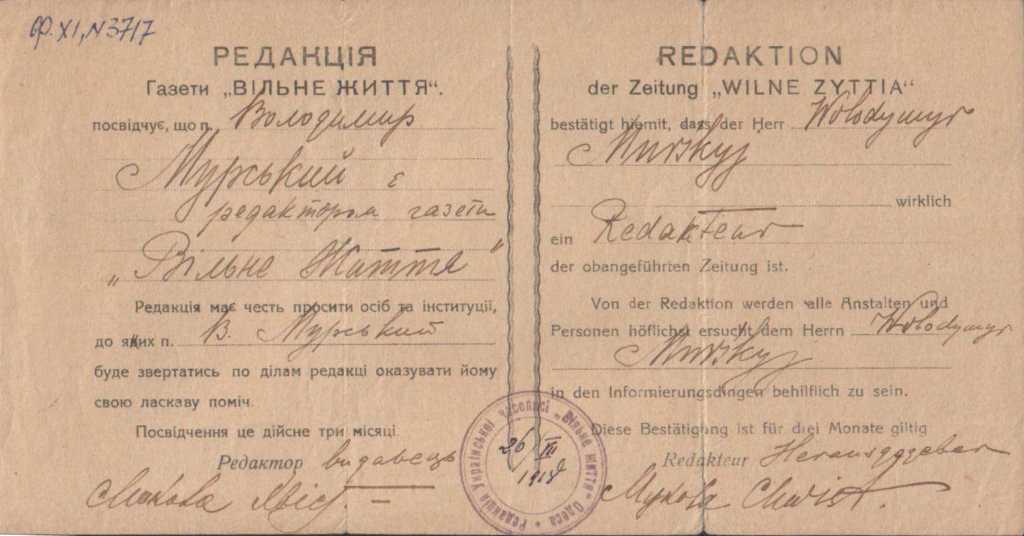 ф. XI, N 3717
РЕДАКЦІЯ
Газети „ВІЛЬНЕ ЖИТТЯ“.
посвідчує, що п. Володимир
Мурський є
редактором газети
„Вільне Життя“
Редакція має честь просити осіб та інституції,
до яких п. В. Мурський
буде звертатись по ділам редакці оказувати йому
свою ласкаву поміч.
Посвідчення це дійсне три місяці.
Редактор видавець
REDAKTION
der Zeitung „WILNE ZYTTIA“
bestätigt hiemit, dass der Herr Wolodymyr
Murskyj
wirklich
ein Redakteur
der obangeführten Zeitung ist.
Von der Redaktion werden alle Anstalten und
Personen höflichst ersucht dem Herrn Wolodymyr
Murskyj
in den Informierungsdingen behilflich zu sein.
Diese Bestätigung ist für drei Monate giltig
Redakteur Herausggeber
Редакція Української Часописі „Вільне життя“ Одеса
26/VII
1918